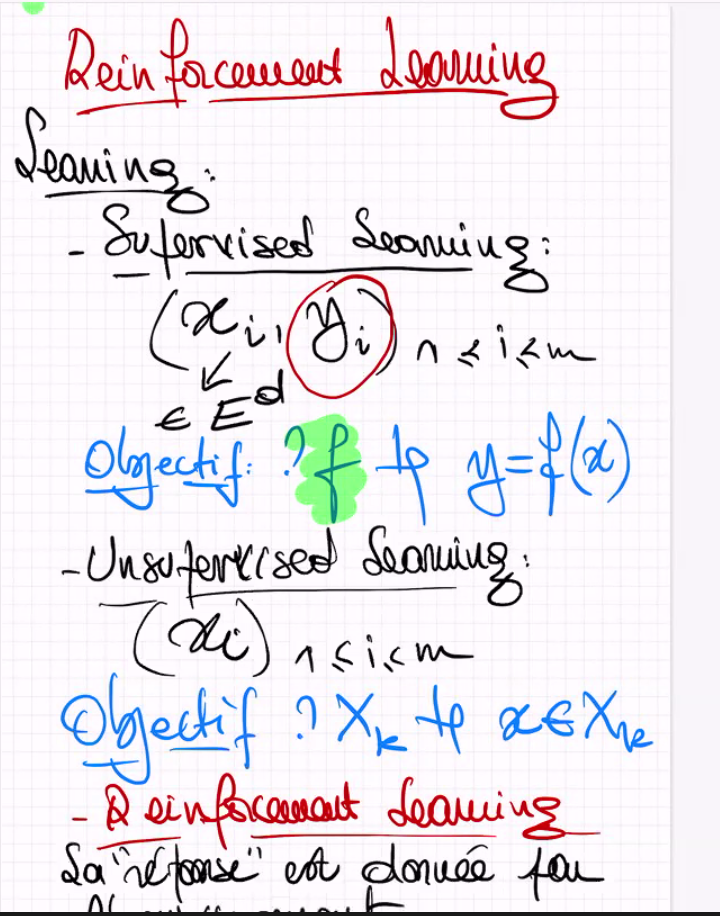 Reinforcement Learning
Learning:
- Supervised Learning:
(x_i, y_i) 1 ≤ i ≤ m
↙
∈ E^d
Objectif: ? f tp y = f(x)
- Unsupervised Learning:
(x_i) 1 ≤ i ≤ m
Objectif ? X_k tp x ∈ X_k
- Reinforcement Learning
La "réponse" est donnée par